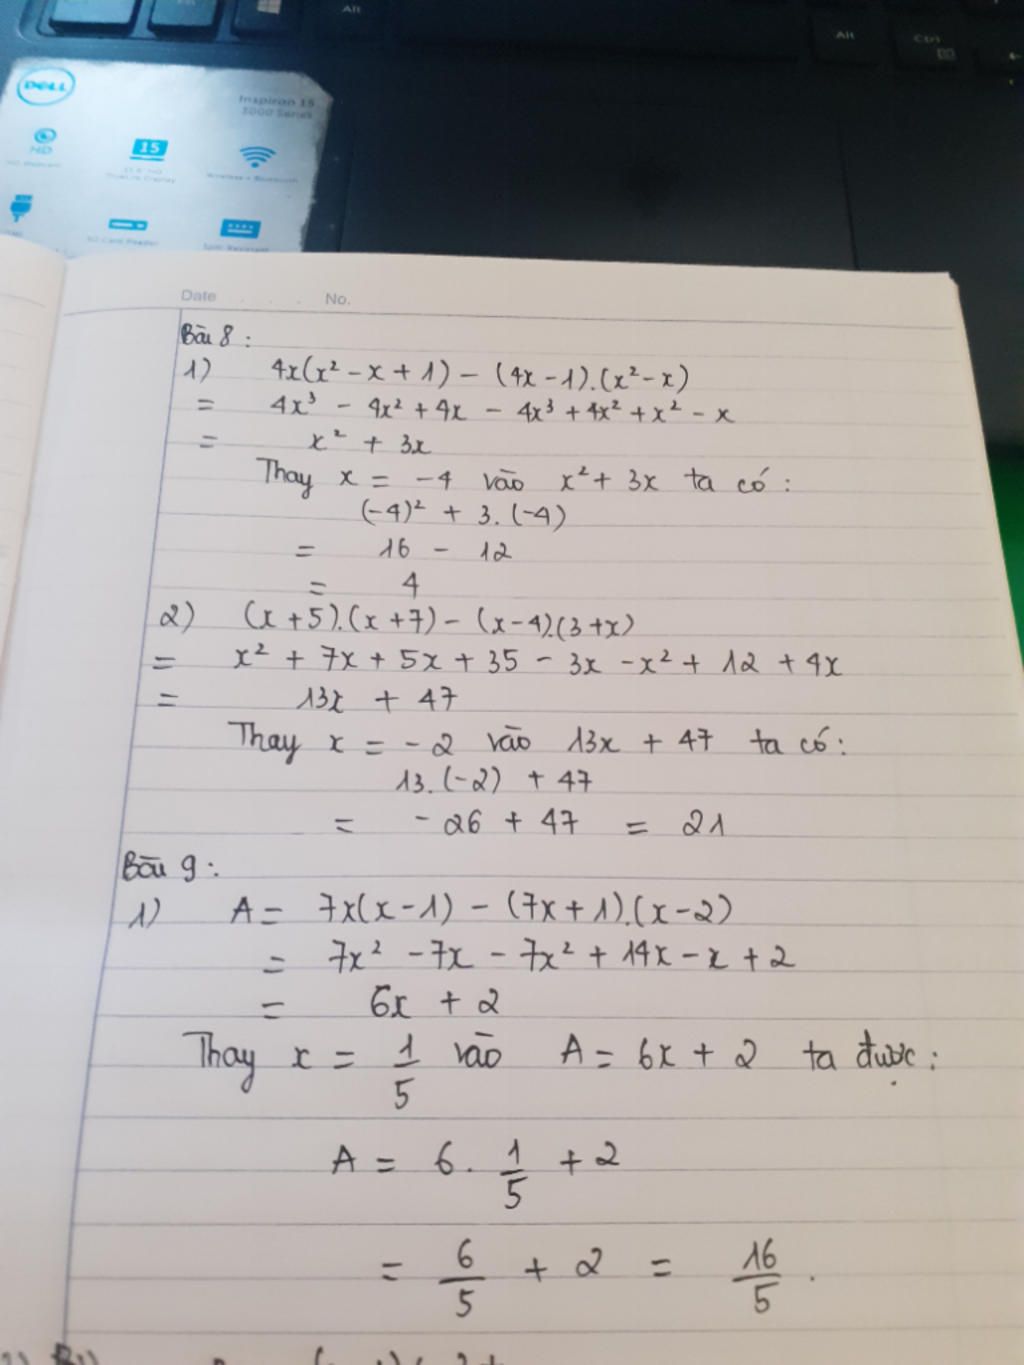 Alt
Alt
Ctrl
DELL
Inspiron 15
3000 Series
HD
15
Date . . . No.
Bài 8 :
1) 4x(x² - x + 1) - (4x - 1).(x² - x)
= 4x³ - 4x² + 4x - 4x³ + 4x² + x² - x
= x² + 3x
Thay x = -4 vào x² + 3x ta có :
(-4)² + 3.(-4)
= 16 - 12
= 4
2) (x + 5).(x + 7) - (x - 4).(3 + x)
= x² + 7x + 5x + 35 - 3x - x² + 12 + 4x
= 13x + 47
Thay x = -2 vào 13x + 47 ta có :
13.(-2) + 47
= -26 + 47 = 21
Bài 9 :
1) A = 7x(x - 1) - (7x + 1).(x - 2)
= 7x² - 7x - 7x² + 14x - x + 2
= 6x + 2
Thay x = 1/5 vào A = 6x + 2 ta được :
A = 6 . 1/5 + 2
= 6/5 + 2 = 16/5 .